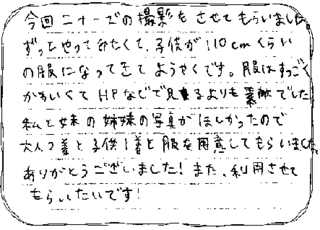 今回ニナーズの撮影をさせてもらいました。
ずっとやってみたくて、子供が110cmくらい
の服になってきてようやくです。服はすっごく
かわいくてHPなどで見るよりも素敵でした
私と妹の姉妹の写真がほしかったので
大人2着と子供1着と服を用意してもらいました。
ありがとうございました!また、利用させて
もらいたいです!